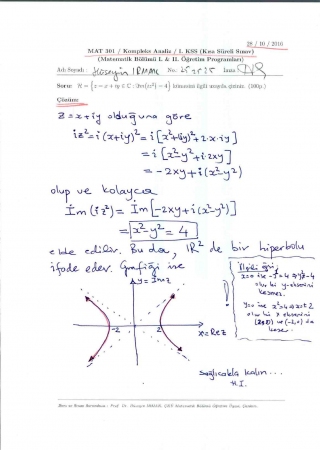 28 / 10 / 2016
MAT 301 / Kompleks Analiz / I. KSS (Kısa Süreli Sınav)
(Matematik Bölümü I. & II. Öğretim Programları)
Adı-Soyadı : Hüseyin IRMAK No: İmza
Soru: H = {z = x + iy ∈ C : Im(iz²) = 4} kümesini ilgili uzayda çiziniz. (100p.)
Çözüm:
z = x+iy olduğuna göre
iz² = i(x+iy)² = i[x²+(iy)²+2·x·iy]
= i[x²-y²+i·2xy]
= -2xy+i(x²-y²)
olup ve kolayca
İm(iz²) = İm[-2xy+i(x²-y²)]
= x²-y² = 4
elde edilir. Bu da, IR² de bir hiperbolü
ifade eder. Grafiği ise
İlgili eğri,
x=0 ise -y²=4 ⇒ y²=-4
olur ki y-eksenini
kesmez.
y=0 ise x²=4 ⇒ x=±2
olur ki x eksenini
(2,0) ve (-2,0) da
keser.
y=İmz
-2
2
x=Rez
Sağlıcakla kalın...
H.I.
Prof. Dr. Hüseyin IRMAK, ÇKÜ Matematik Bölümü Öğretim Üyesi, Çankırı.